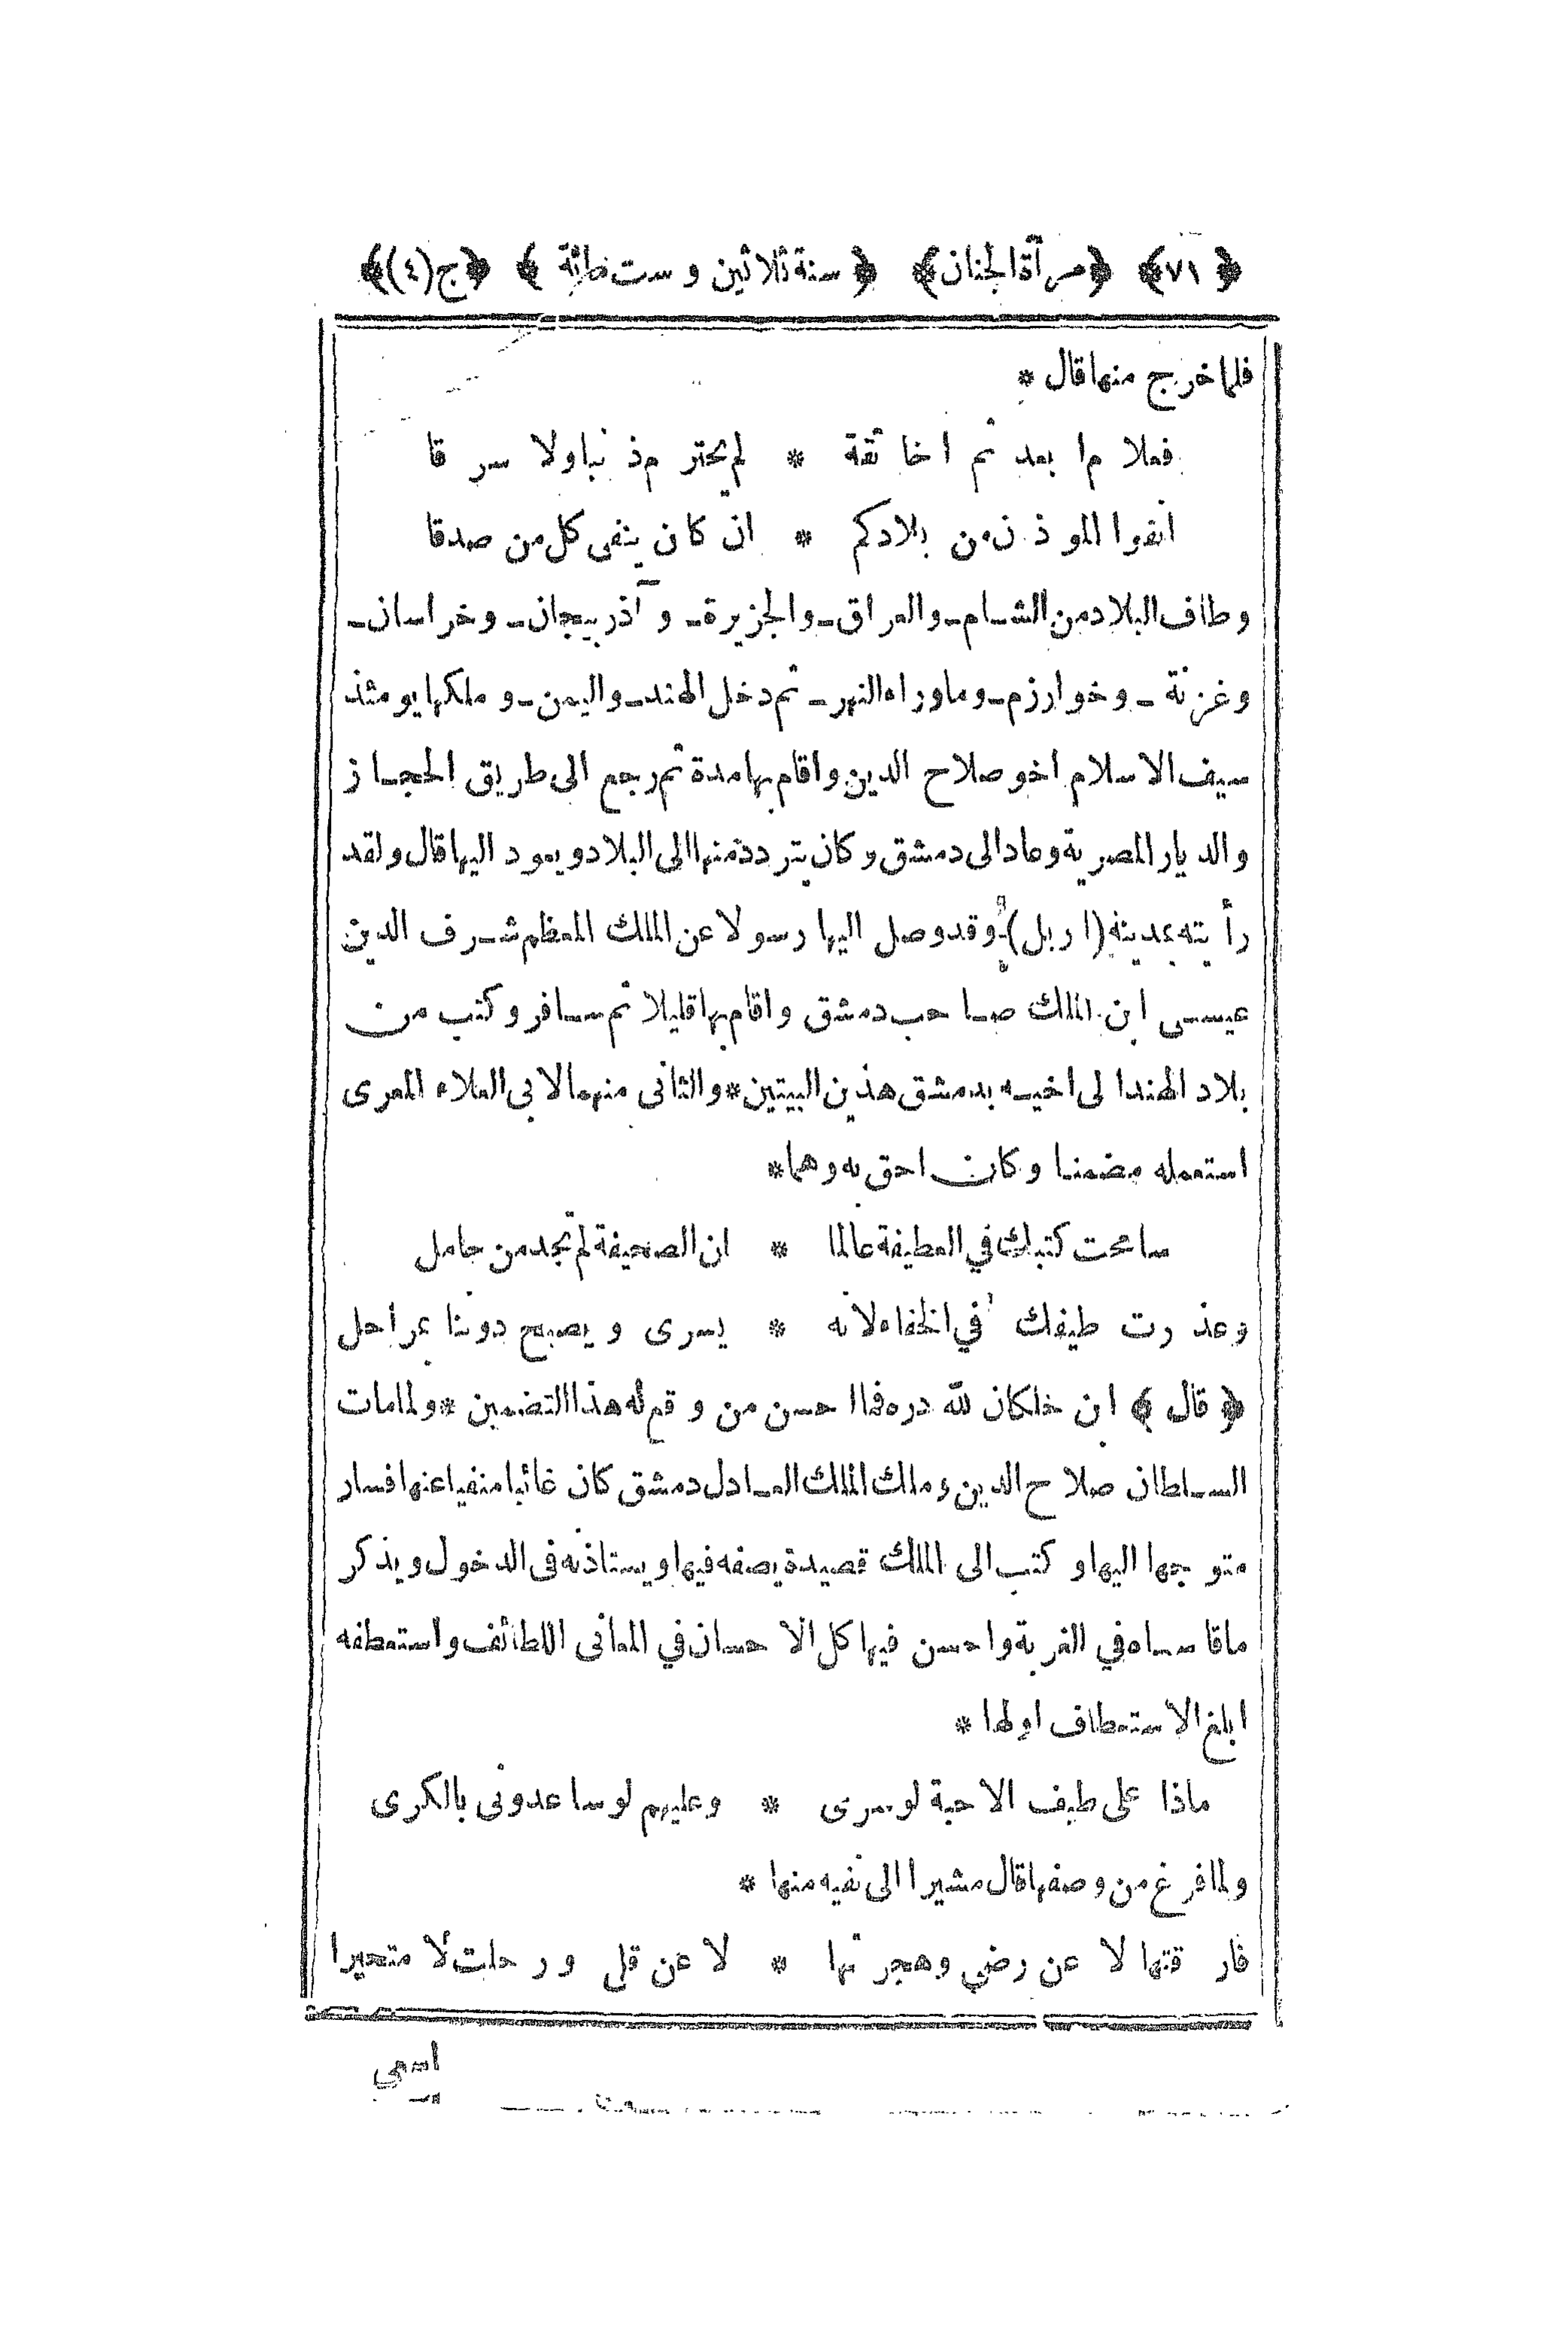 ﴿ ٧١ ﴾ ﴿مرآة الجنان﴾ ﴿ سنة ثلاثين و ست مائة ﴾ ﴿ج(٤)﴾
فلما خرج منها قال *
فعلام ابعدتم اخا ثقة * لم يحترم ذنبا ولا سرقا
انفوا المؤذن من بلادكم * ان كان ينفى كل من صدقا
وطاف البلاد من الشام ـ والعراق ـ والجزيرة ـ و آذربيجان ـ وخراسان ـ
وغزنة ـ وخوارزم ـ وماوراء النهر ـ ثم دخل الهند ـ واليمن ـ و ملكها يومئذ
سيف الاسلام اخو صلاح الدين واقام بها مدة ثم رجع الى طريق الحجاز
والديار المصرية وعاد الى دمشق وكان يتردد منها الى البلاد ويعود اليها قال ولقد
رأيته بمدينة (اربل) وقد وصل اليها رسولا عن الملك المعظم شرف الدين
عيسى ابن الملك صاحب دمشق واقام بها قليلا ثم سافر وكتب من
بلاد الهند الى اخيه بدمشق هذين البيتين * والثانى منهما لابى العلاء المعرى
استعمله مضمنا وكان احق به وهما *
سامحت كتبك في القطيعة عالما * ان الصحيفة لم تجد من حامل
وعذرت طيفك في الجفاء لانه * يسرى و يصبح دوننا بمراحل
﴿ قال ﴾ ابن خلكان لله دره فما احسن من وقع له هذا التضمين * ولما مات
السلطان صلاح الدين وملك الملك العادل دمشق كان غائبا منفيا عنها فسار
متوجها اليها وكتب الى الملك قصيدة يصفه فيها ويستاذنه فى الدخول ويذكر
ماقاساه في الغربة واحسن فيها كل الاحسان في المعانى اللطائف واستعطفه
ابلغ الاستعطاف اولها *
ماذا على طيف الاحبة لو سرى * وعليهم لو ساعدونى بالكرى
ولما فرغ من وصفها قال مشيرا الى نفيه منها *
فارقتها لا عن رضى وهجرتها * لا عن قلى ورحلت لا متحيرا